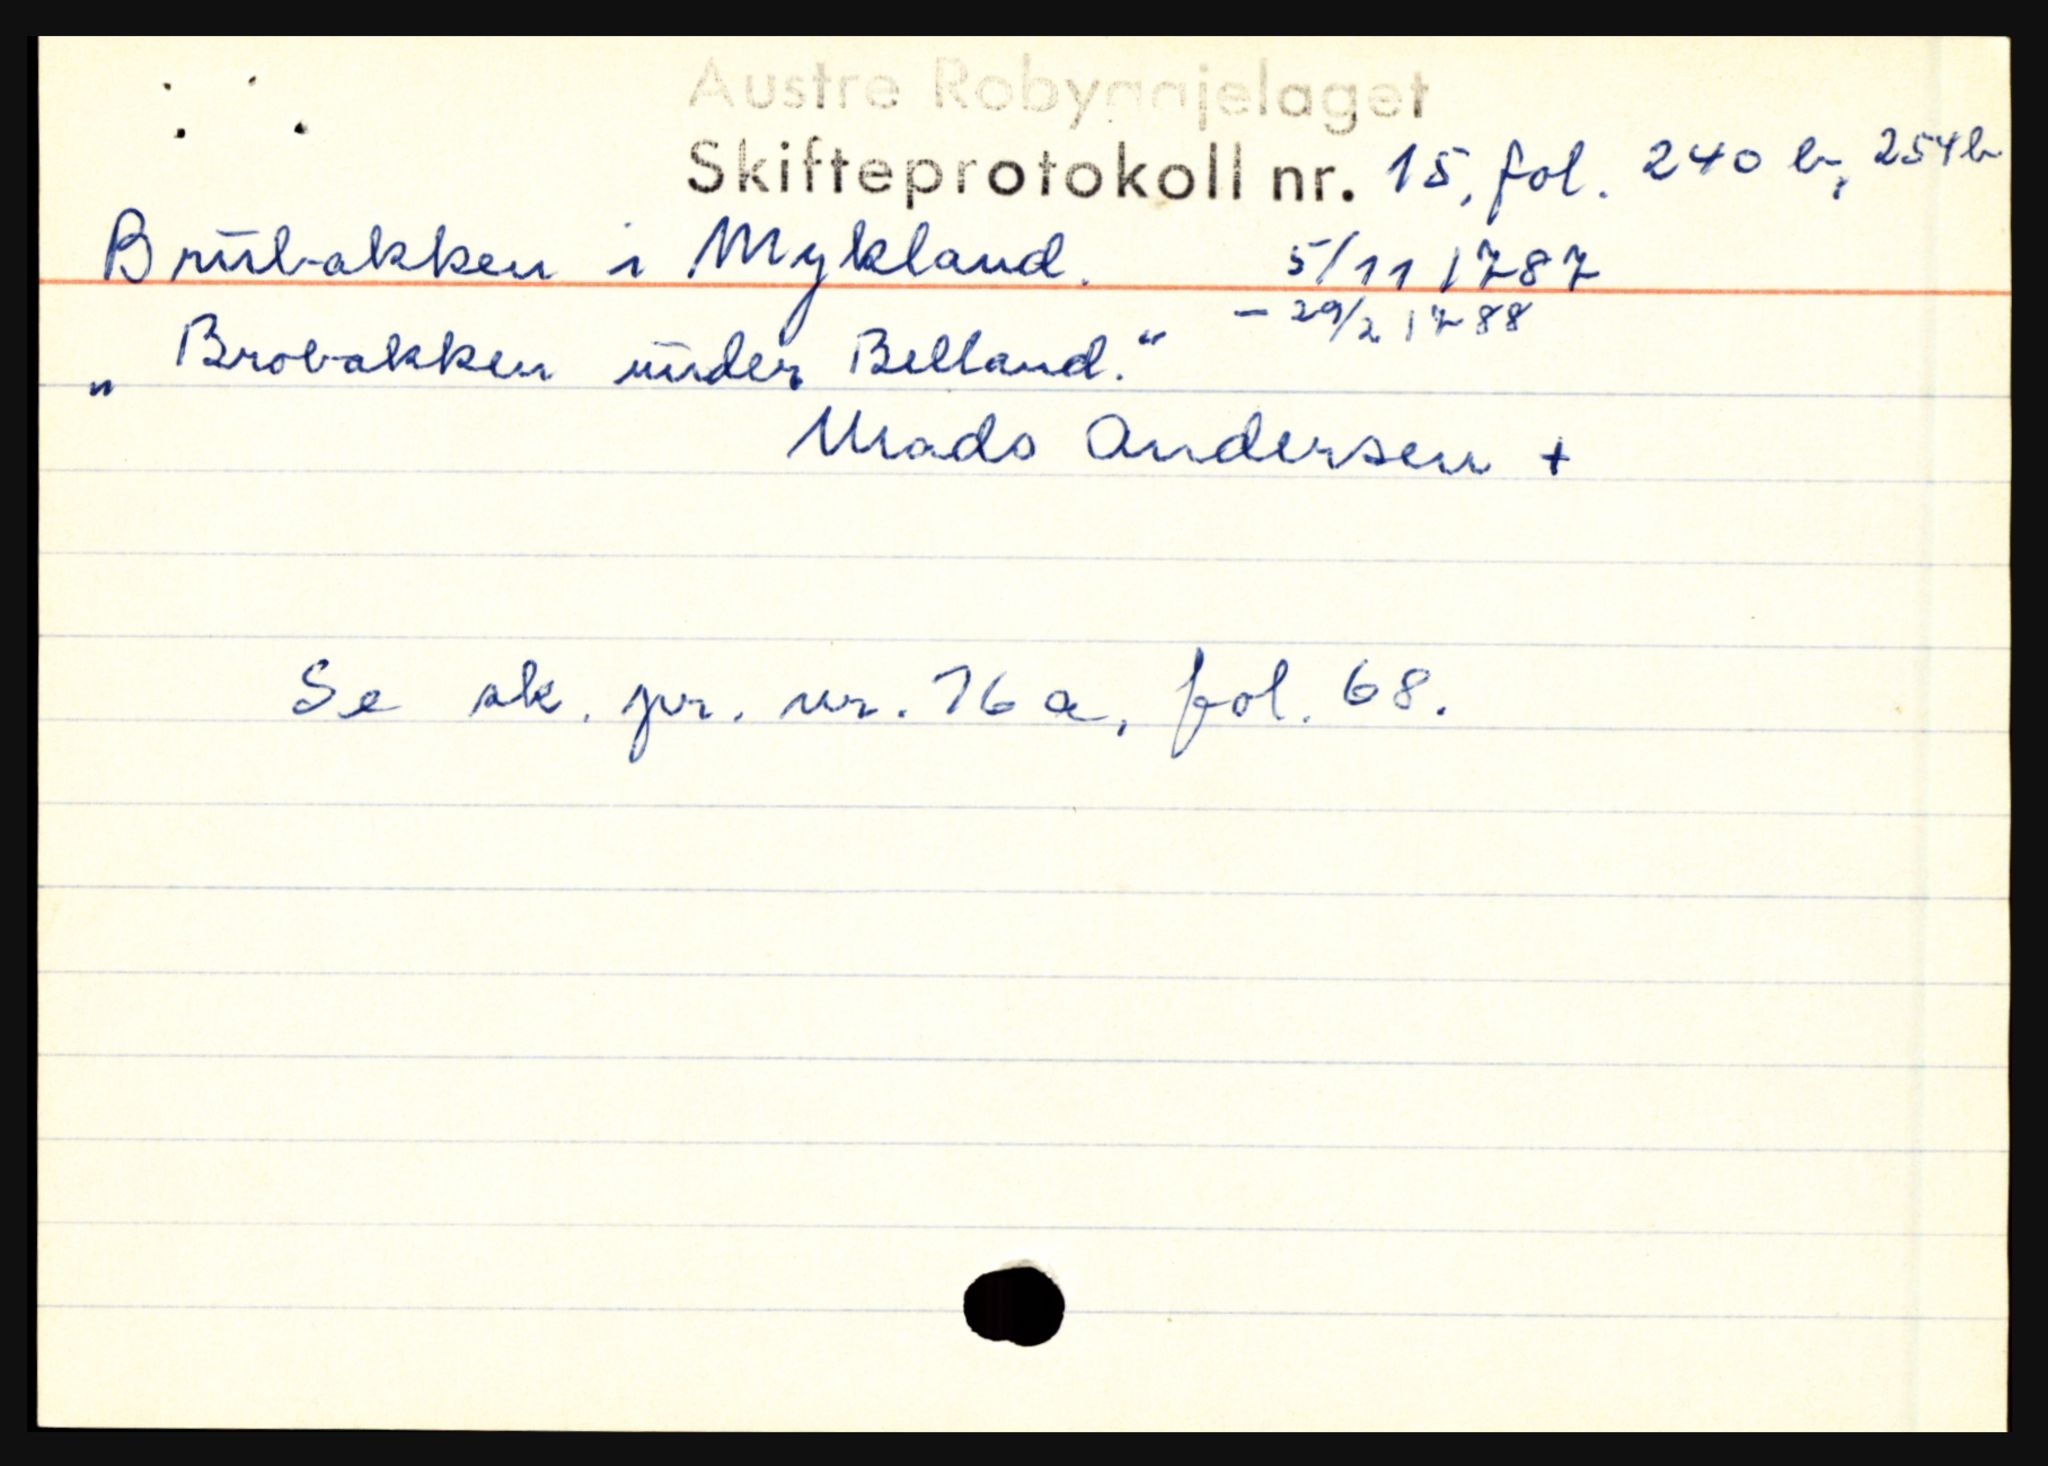 Austre Robyggjelaget
Skifteprotokoll nr. 15, fol. 240 b, 254b
Brubakken i Mykland. 5/11 1787
- 29/2 1788
„Brobakken under Belland.“
Mads Andersen +
Se sk. pr. nr. 16 a, fol. 68.